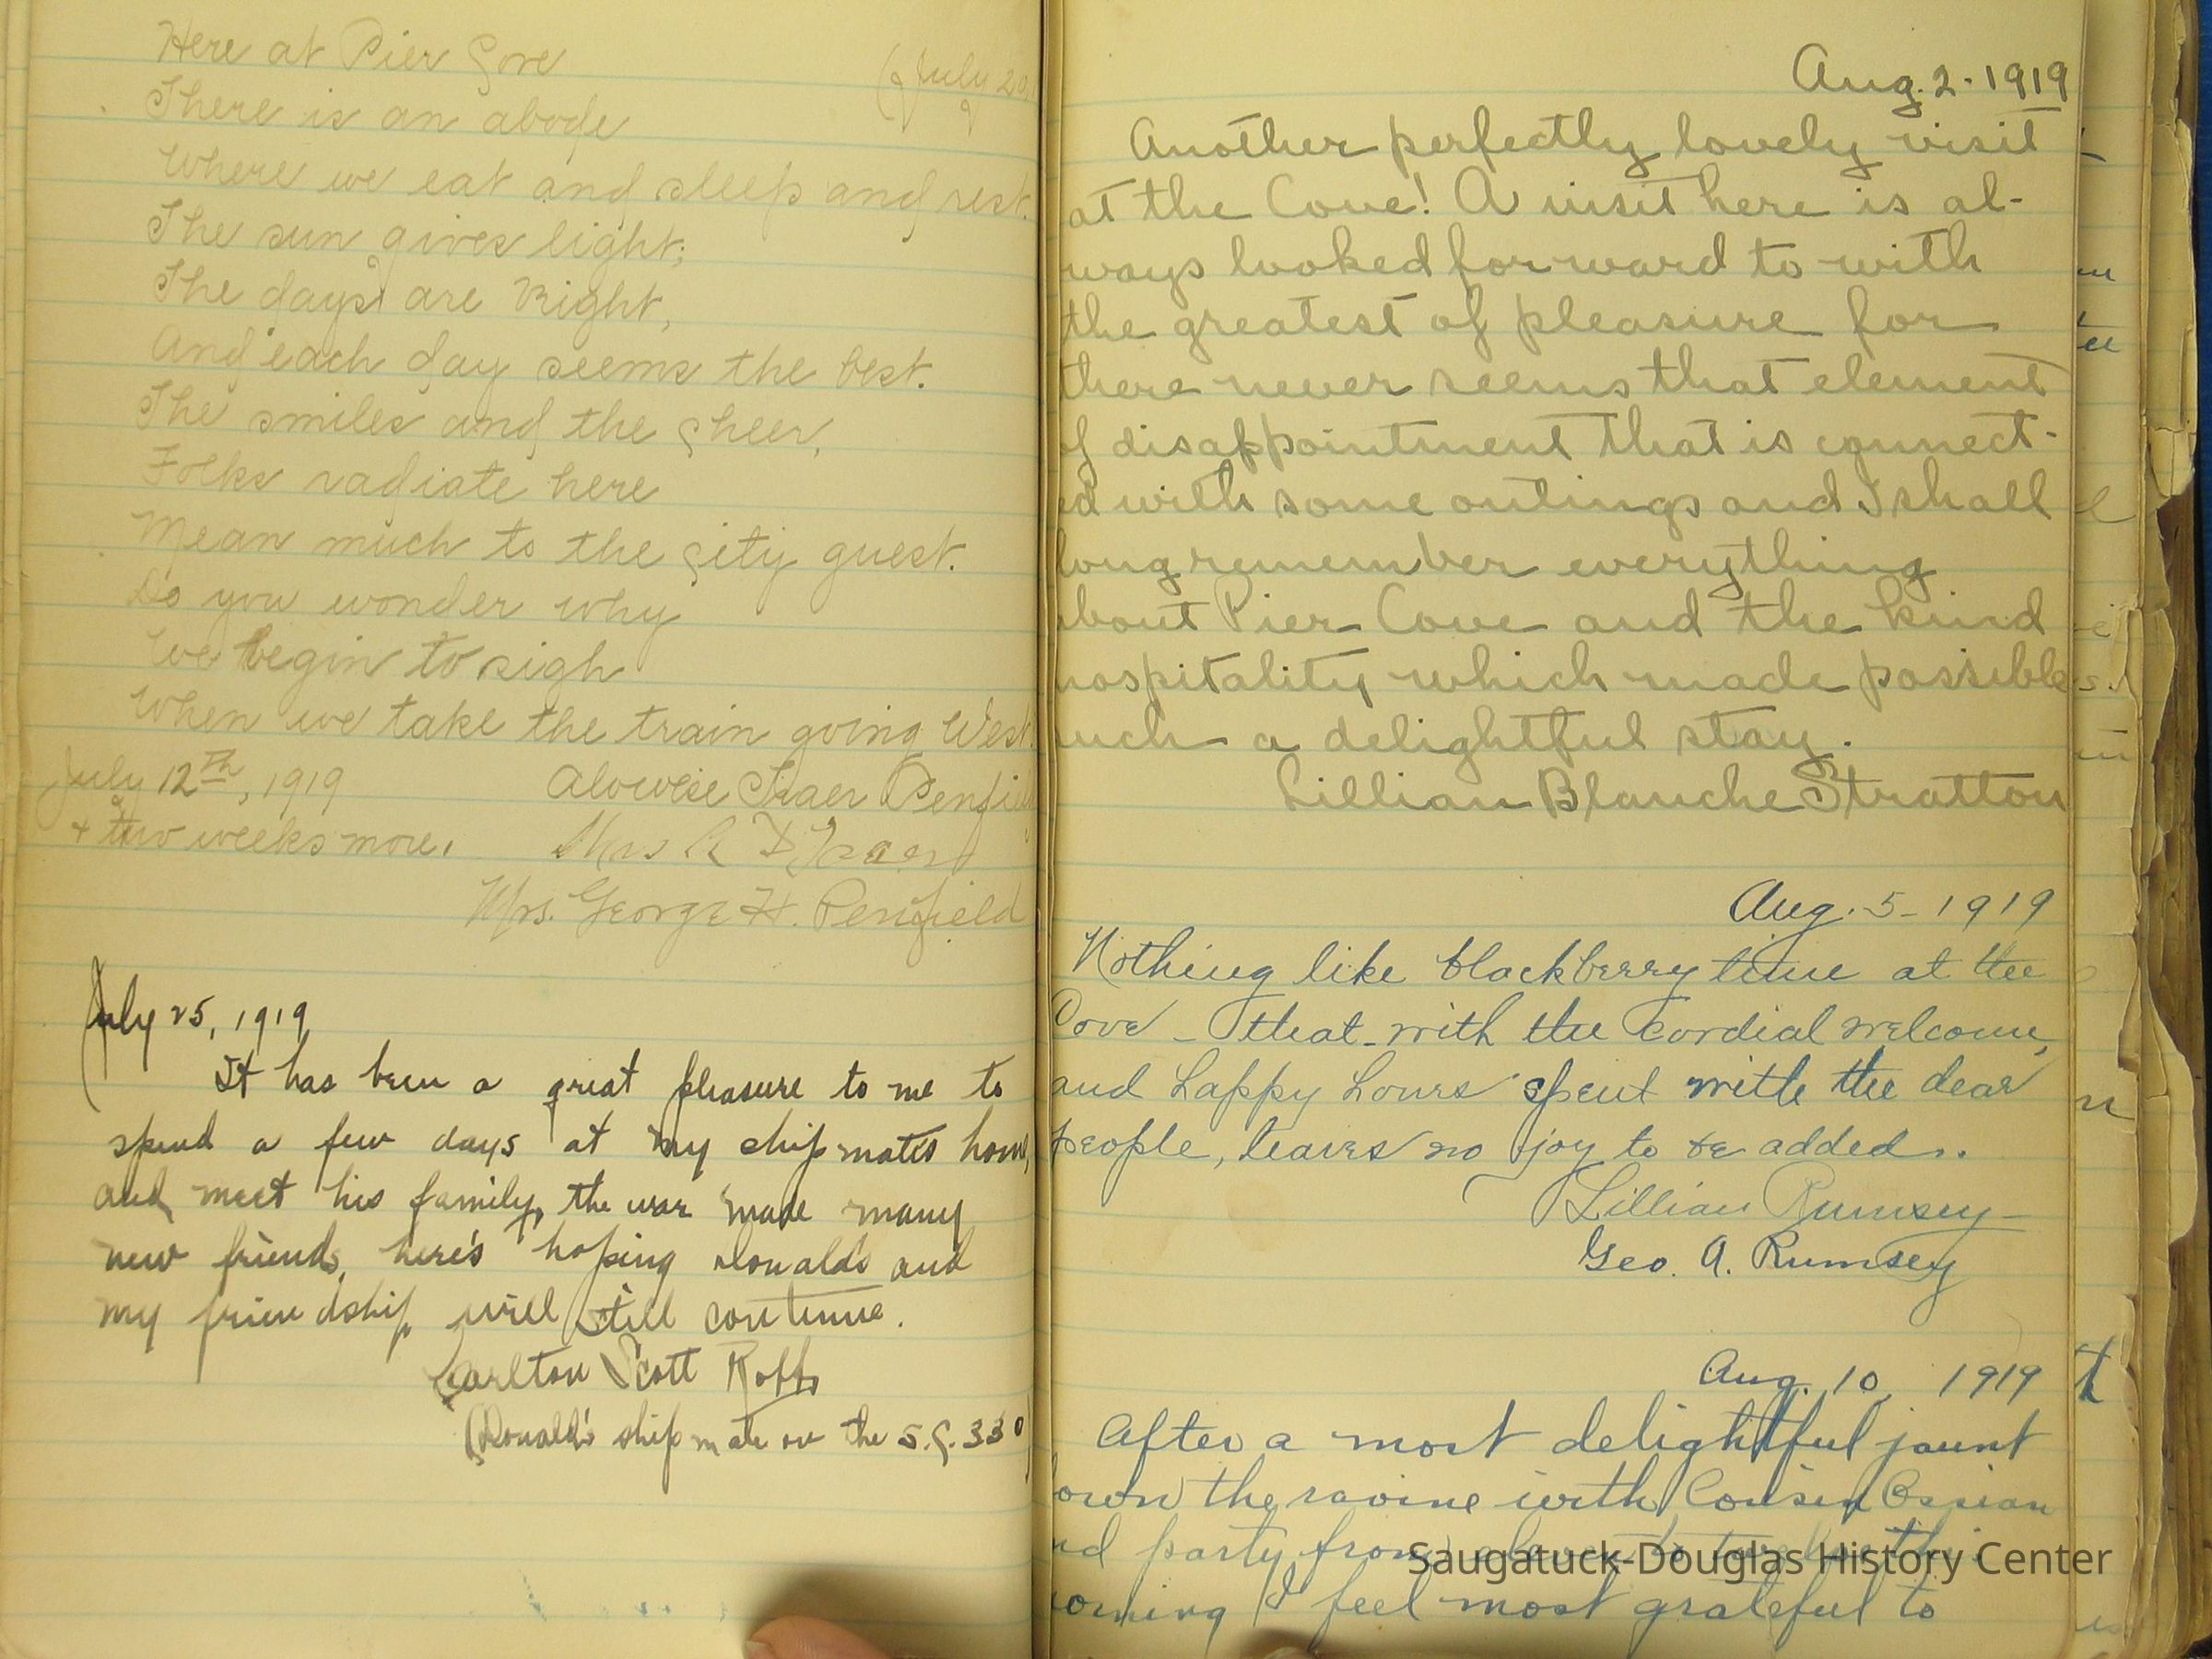 Here at Pier Cove
(July 20
There is an abode
Where we eat and sleep and rest.
The sun gives light;
The days are bright,
And each day seems the best.
The smiles and the cheer,
Folks radiate here
Mean much to the city guest.
Do you wonder why
We begin to sigh
When we take the train going West.
July 12th, 1919
& two weeks more.
Alowese Traer Penfield
Mrs R D Traer
Mrs. George H. Penfield
July 25, 1919
It has been a great pleasure to me to
spend a few days at my shipmates home,
and meet his family, the war made many
new friends, here's hoping Donalds and
my friendship will still continue.
Carlton Scott
(Donald's shipmate on the S.C. 330
Aug. 2 - 1919
Another perfectly lovely visit
at the Cove! A visit here is al-
ways looked forward to with
the greatest of pleasure for
there never seems that element
of disappointment that is connect-
ed with some outings and I shall
long remember everything
about Pier Cove and the kind
hospitality which made possible
such a delightful stay.
Lillian Blanche Stratton
Aug. 5 - 1919
Nothing like blackberry time at the
Cove - that - with the cordial welcome,
and happy hours spent with the dear
people, leaves no joy to be added.
Lillian Rumsey
Geo. A. Rumsey
Aug. 10, 1919
After a most delightful jaunt
down the ravine with Cousin Ossian
and party from
morning I feel most grateful to
Saugatuck-Douglas History Center